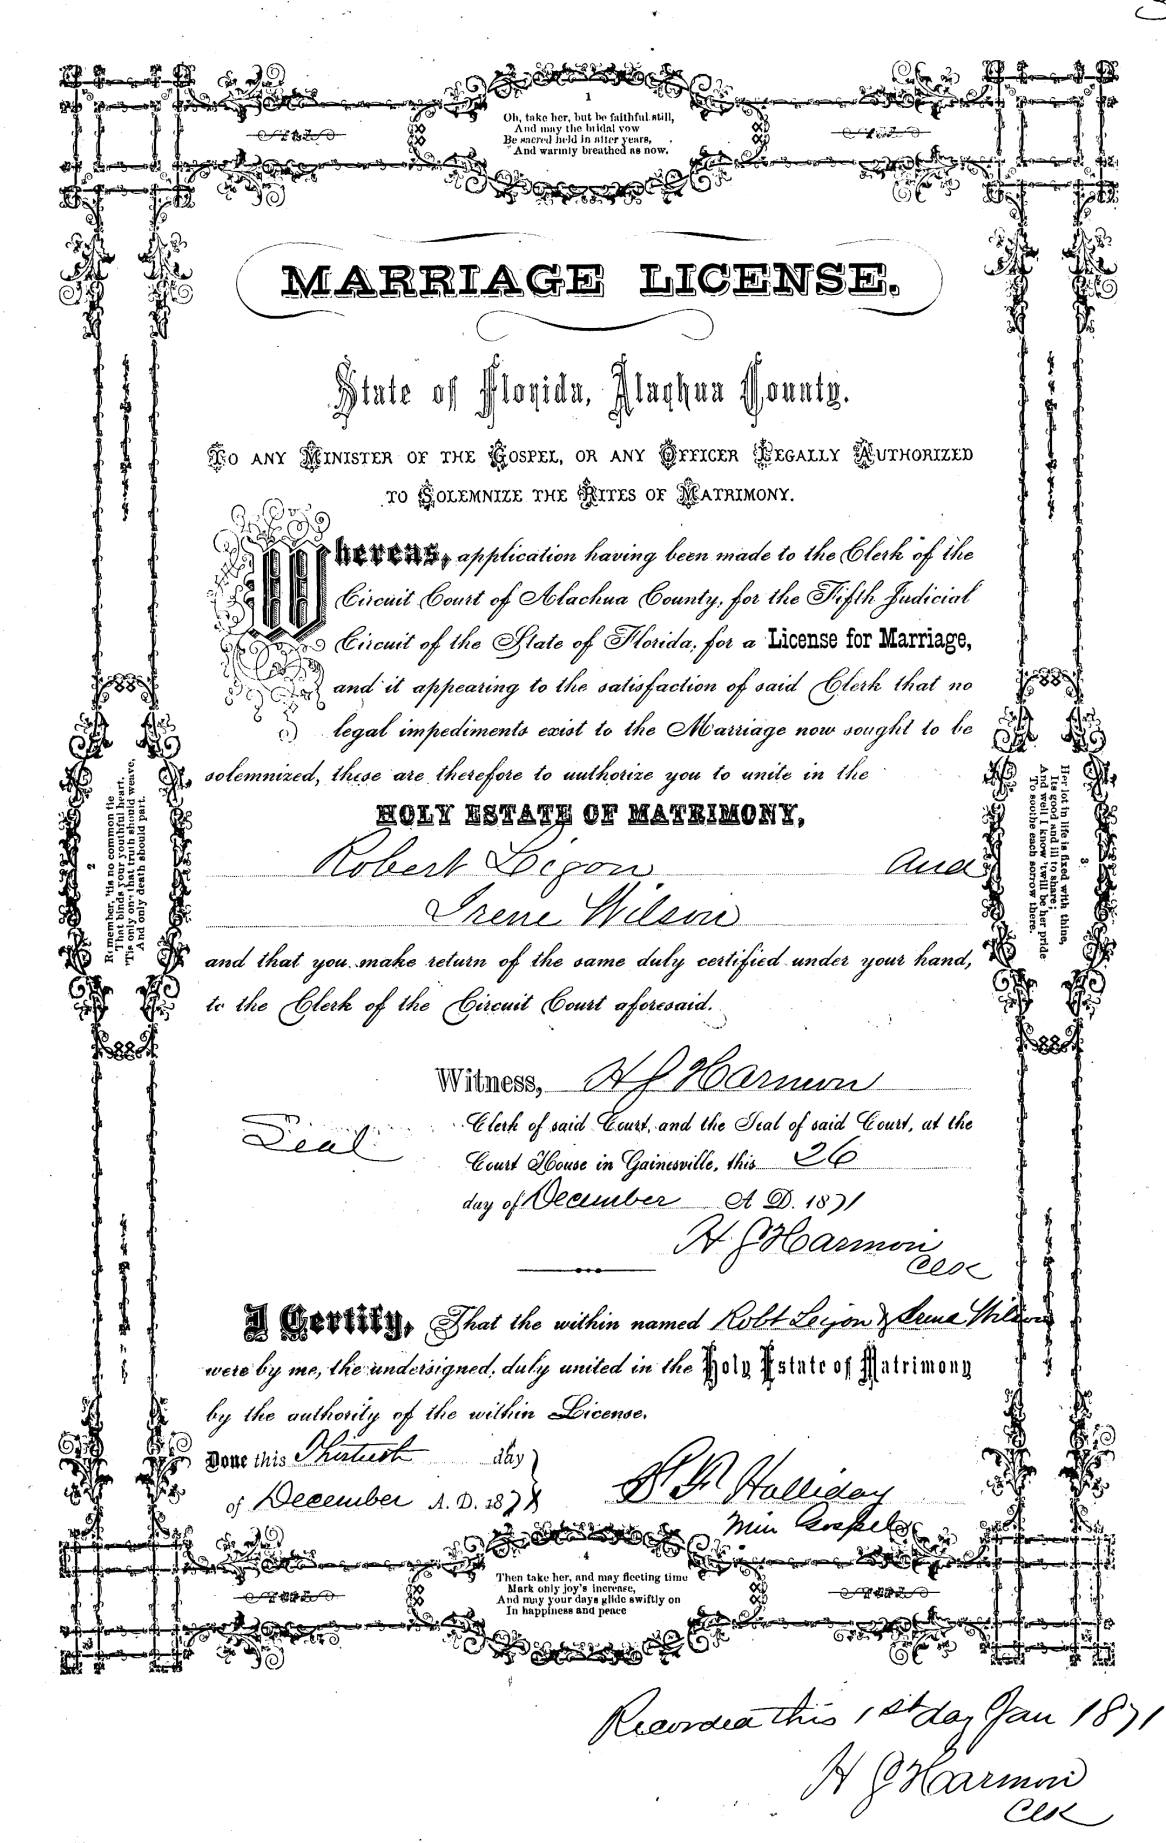 1
Oh, take her, but be faithful still,
And may the bridal vow
Be sacred held in after years,
And warmly breathed as now.
MARRIAGE LICENSE.
State of Florida, Alachua County.
TO ANY MINISTER OF THE GOSPEL, OR ANY OFFICER LEGALLY AUTHORIZED
TO SOLEMNIZE THE RITES OF MATRIMONY.
Whereas, application having been made to the Clerk of the
Circuit Court of Alachua County, for the Fifth Judicial
Circuit of the State of Florida, for a License for Marriage,
and it appearing to the satisfaction of said Clerk that no
legal impediments exist to the Marriage now sought to be
solemnized, these are therefore to authorize you to unite in the
HOLY ESTATE OF MATRIMONY,
Robert Ligon and
Irene Wilson
and that you make return of the same duly certified under your hand,
to the Clerk of the Circuit Court aforesaid.
Witness, H J Harmon
Seal
Clerk of said Court, and the Seal of said Court, at the
Court House in Gainesville, this 26
day of December A. D. 1871
H J Harmon
Clk
I Certify, That the within named Robt Ligon & Irena Wilson
were by me, the undersigned, duly united in the Holy Estate of Matrimony
by the authority of the within License.
Done this Thirtieth day
of December A. D. 187
Halliday
Min Gospel
2
Remember, 'tis no common tie
That binds your youthful heart,
'Tis only one that truth should weave,
And only death should part.
3
Her lot in life is fixed with thine,
Its good and ill to share;
And well I know 'twill be her pride
To soothe each sorrow there.
4
Then take her, and may fleeting time
Mark only joy's increase,
And may your days glide swiftly on
In happiness and peace
Recorded this 1st day Jan 1871
H J Harmon
Clk